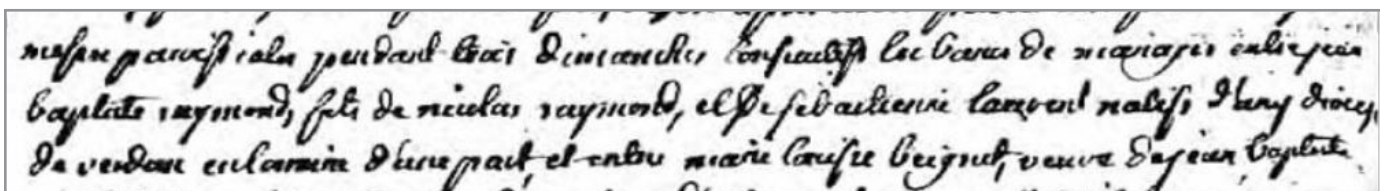 messes paroissiales pendant trois dimanches consecutifs les bans de mariages entre jean
baptiste raymond, fils de nicolas raymond, et de sebastienne laurent natifs d'any dioces
de verdun en d'une part, et entre marie louise beignet, veuve de jean baptiste